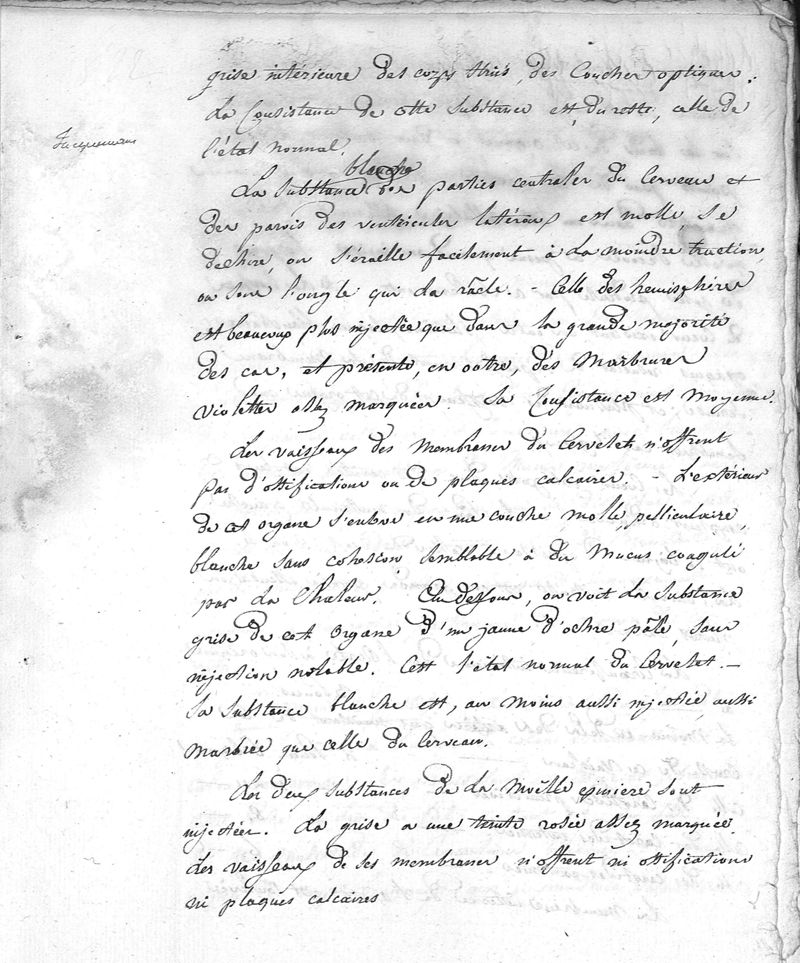 grise intérieure des corps striés, des Couches optiques.
La Consistance de cette substance est, du reste, celle de
l'état normal.
blanche
La substance des parties centrales du Cerveau et
des parois des ventricules latéraux est molle, se
déchire, ou s'éraille facilement à la moindre traction,
ou sous l'ongle qui la râcle. - Celle des hemisphères
est beaucoup plus injectée que dans la grande majorité
des cas, et présente, en outre, des Marbrures
violettes assez marquées. Sa Consistance est moyenne.
Les vaisseaux des Membranes du Cervelet n'offrent
pas d'ossifications ou de plaques calcaires. - L'extérieur
de cet organe s'enlève en une couche molle, pelliculaire,
blanche sans cohésion, semblable à du Mucus coagulé
par la Chaleur. Au dessous, on voit la substance
grise de cet Organe d'un jaune d'ochre pâle, sans
injection notable. C'est l'état normal du Cervelet. -
Sa substance blanche est, au moins aussi injectée, aussi
marbrée que celle du Cerveau.
Les deux substances de la Moëlle épiniere sont
injectées. La grise a une teinte rosée assez marquée.
Les vaisseaux de ses membranes n'offrent ni ossifications
ni plaques calcaires